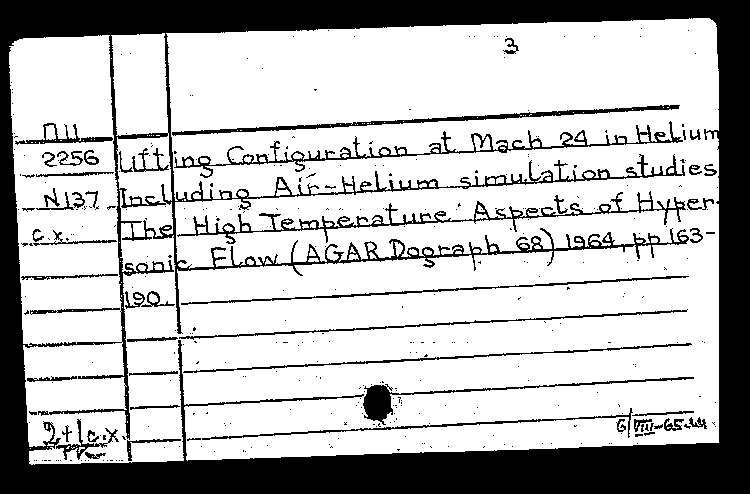 3
П11
2256 Lifting Configuration at Mach 24 in Helium
N137 Including Air-Helium simulation studies
c.x. The High Temperature Aspects of Hyper-
sonic Flow (AGAR Dograph 68) 1964, pp 163-
190.
2+1c.x.
6/VIII-65